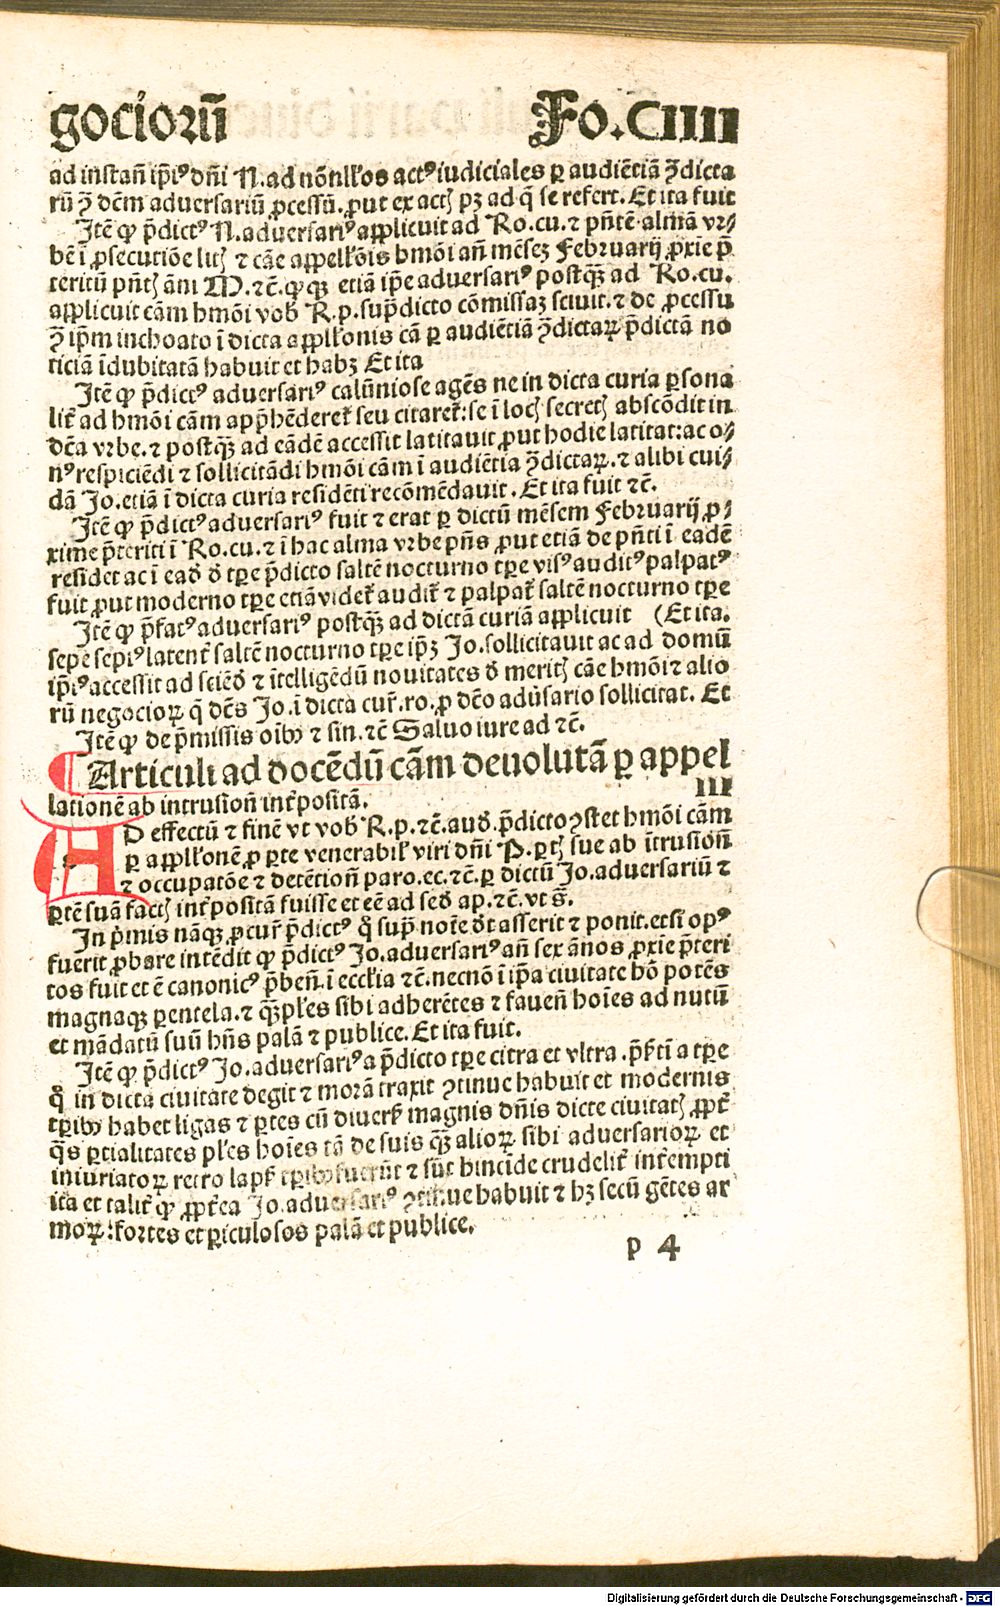 gociorū Fo. CIIII
ad instan̄ ip̄iꝰ dn̄i N. ad nōnll'os actꝰ iudiciales ꝑ audiētiā ꝯdicta
rū ꝯ dēm aduersariū ꝓcessū. ꝓut ex actꝭ pꝫ ad q̄ se refert. Et ita fuit
Itē ꝙ p̄dictꝰ N. aduersariꝰ applicuit ad Ro. cu. ⁊ pn̄tē almā vr⸗
bē ī ꝓsecutiōe litꝭ ⁊ cāe appell'ōis hmōi an̄ mēseꝫ Februarij ꝓxīe p̄
teritū pn̄tꝭ āni M. ⁊c̄. ꝙꝙ etiā ip̄e aduersariꝰ postꝙ̄ ad Ro. cu.
applicuit cām hmōi vob̄ R. p. sup̄dicto cōmissaꝫ sciuit. ⁊ de ꝓcessu
ꝯ ip̄m inchoato ī dicta appll'onis cā ꝑ audiētiā ꝯdictaꝝ p̄dictā no
ticiā īdubitatā habuit et habꝫ Et ita
Itē ꝙ p̄dictꝰ aduersariꝰ calūniose agēs ne in dicta curia ꝑsona
lit̄ ad hmōi cām app̄hēderet̄ seu citaret̄: se ī locꝭ secretꝭ abscōdit in
dc̄a vrbe. ⁊ postꝙ̄ ad eādē accessit latitauit ꝓut hodie latitat: ac o⸗
nꝰ respiciēdi ⁊ sollicitādi hmōi cām ī audiētia ꝯdictaꝝ. ⁊ alibi cui⸗
dā Jo. etiā ī dicta curia residēti recōmēdauit. Et ita fuit ⁊c̄.
Itē ꝙ p̄dictꝰ aduersariꝰ fuit ⁊ erat ꝑ dictū mēsem Februarij ꝓ⸗
xime p̄teriti ī Ro. cu. ⁊ ī hac alma vrbe pn̄s ꝓut etiā de pn̄ti ī eadē
residet ac ī ead̄ d̄ tp̄e p̄dicto saltē nocturno tp̄e visꝰ auditꝰ palpatꝰ
fuit ꝓut moderno tp̄e etiā videt̄ audit̄ ⁊ palpat̄ saltē nocturno tp̄e
Itē ꝙ p̄fatꝰ aduersariꝰ postꝙ̄ ad dictā curiā applicuit (Et ita.
sepe sepiꝰ latent̄ saltē nocturno tp̄e ip̄ꝫ Jo. sollicitauit ac ad domū
ip̄iꝰ accessit ad sciēd̄ ⁊ ītelligēdū nouitates d̄ meritꝭ cāe hmōi ⁊ alio
rū negocioꝝ q̄ dc̄s Jo. ī dicta cur̄. ro. ꝓ dc̄o adu̓sario sollicitat. Et
Itē ꝙ de p̄missis oīb ⁊ sin. ⁊c̄ Saluo iure ad ⁊c̄.
Articuli ad docēdū cām deuolutā ꝑ appel
lationē ab intrusion̄ int̄positā. III
AD effectū ⁊ finē vt vob̄ R. p. ⁊c̄. aud̄. p̄dicto ꝯstet hmōi cām
ꝑ appll'onē ꝓ ꝑte venerabil' viri dn̄i P. ꝑtꝭ sue ab ītrusion̄
⁊ occupatōe ⁊ detētion̄ paro. ec. ⁊c̄. ꝑ dictū Jo. aduersariū ⁊
ꝑtē suā factꝭ int̄positā fuisse et eē ad sed̄ ap. ⁊c̄. vt s̄.
In p̄mis nāqꝫ ꝓcur̄ p̄dictꝰ q̊ sup̄ not̄e d̄t asserit ⁊ ponit. et si opꝰ
fuerit ꝓbare intēdit ꝙ p̄dictꝰ Jo. aduersariꝰ an̄ sex ānos ꝓxīe p̄teri
tos fuit et ē canonicꝰ p̄ben̄. ī eccl'ia ⁊c̄. necnō ī ip̄a ciuitate hō potēs
magnaqꝫ ꝑentela. ⁊ ꝙ̄ples sibi adherētes ⁊ fauen̄ hoīes ad nutū
et mādatū suū hn̄s palā ⁊ publice. Et ita fuit.
Itē ꝙ p̄dictꝰ Jo. aduersariꝰ a p̄dicto tp̄e citra et vltra. p̄t̄i a tp̄e
q̊ in dicta ciuitate degit ⁊ morā traxit ꝯtinue habuit et modernis
tp̄ib habet ligas ⁊ ꝑtes cū diuers̄ magnis dn̄is dicte ciuitatꝭ ꝓpt̄
q̄s ꝑcialitates pl'es hoīes tā de suis ꝙ̄ alioꝝ sibi aduersarioꝝ et
iniuriatoꝝ retro laps̄ tp̄ib fuerūt ⁊ sūt hincīde crudelit̄ int̄empti
ita et talit̄ ꝙ ꝓpt̄ea Jo. aduersariꝰ ꝯtinue habuit ⁊ hꝫ secū gētes ar
moꝝ: fortes et ꝑiculosos palā et publice.
p 4
Digitalisierung gefördert durch die Deutsche Forschungsgemeinschaft - DFG